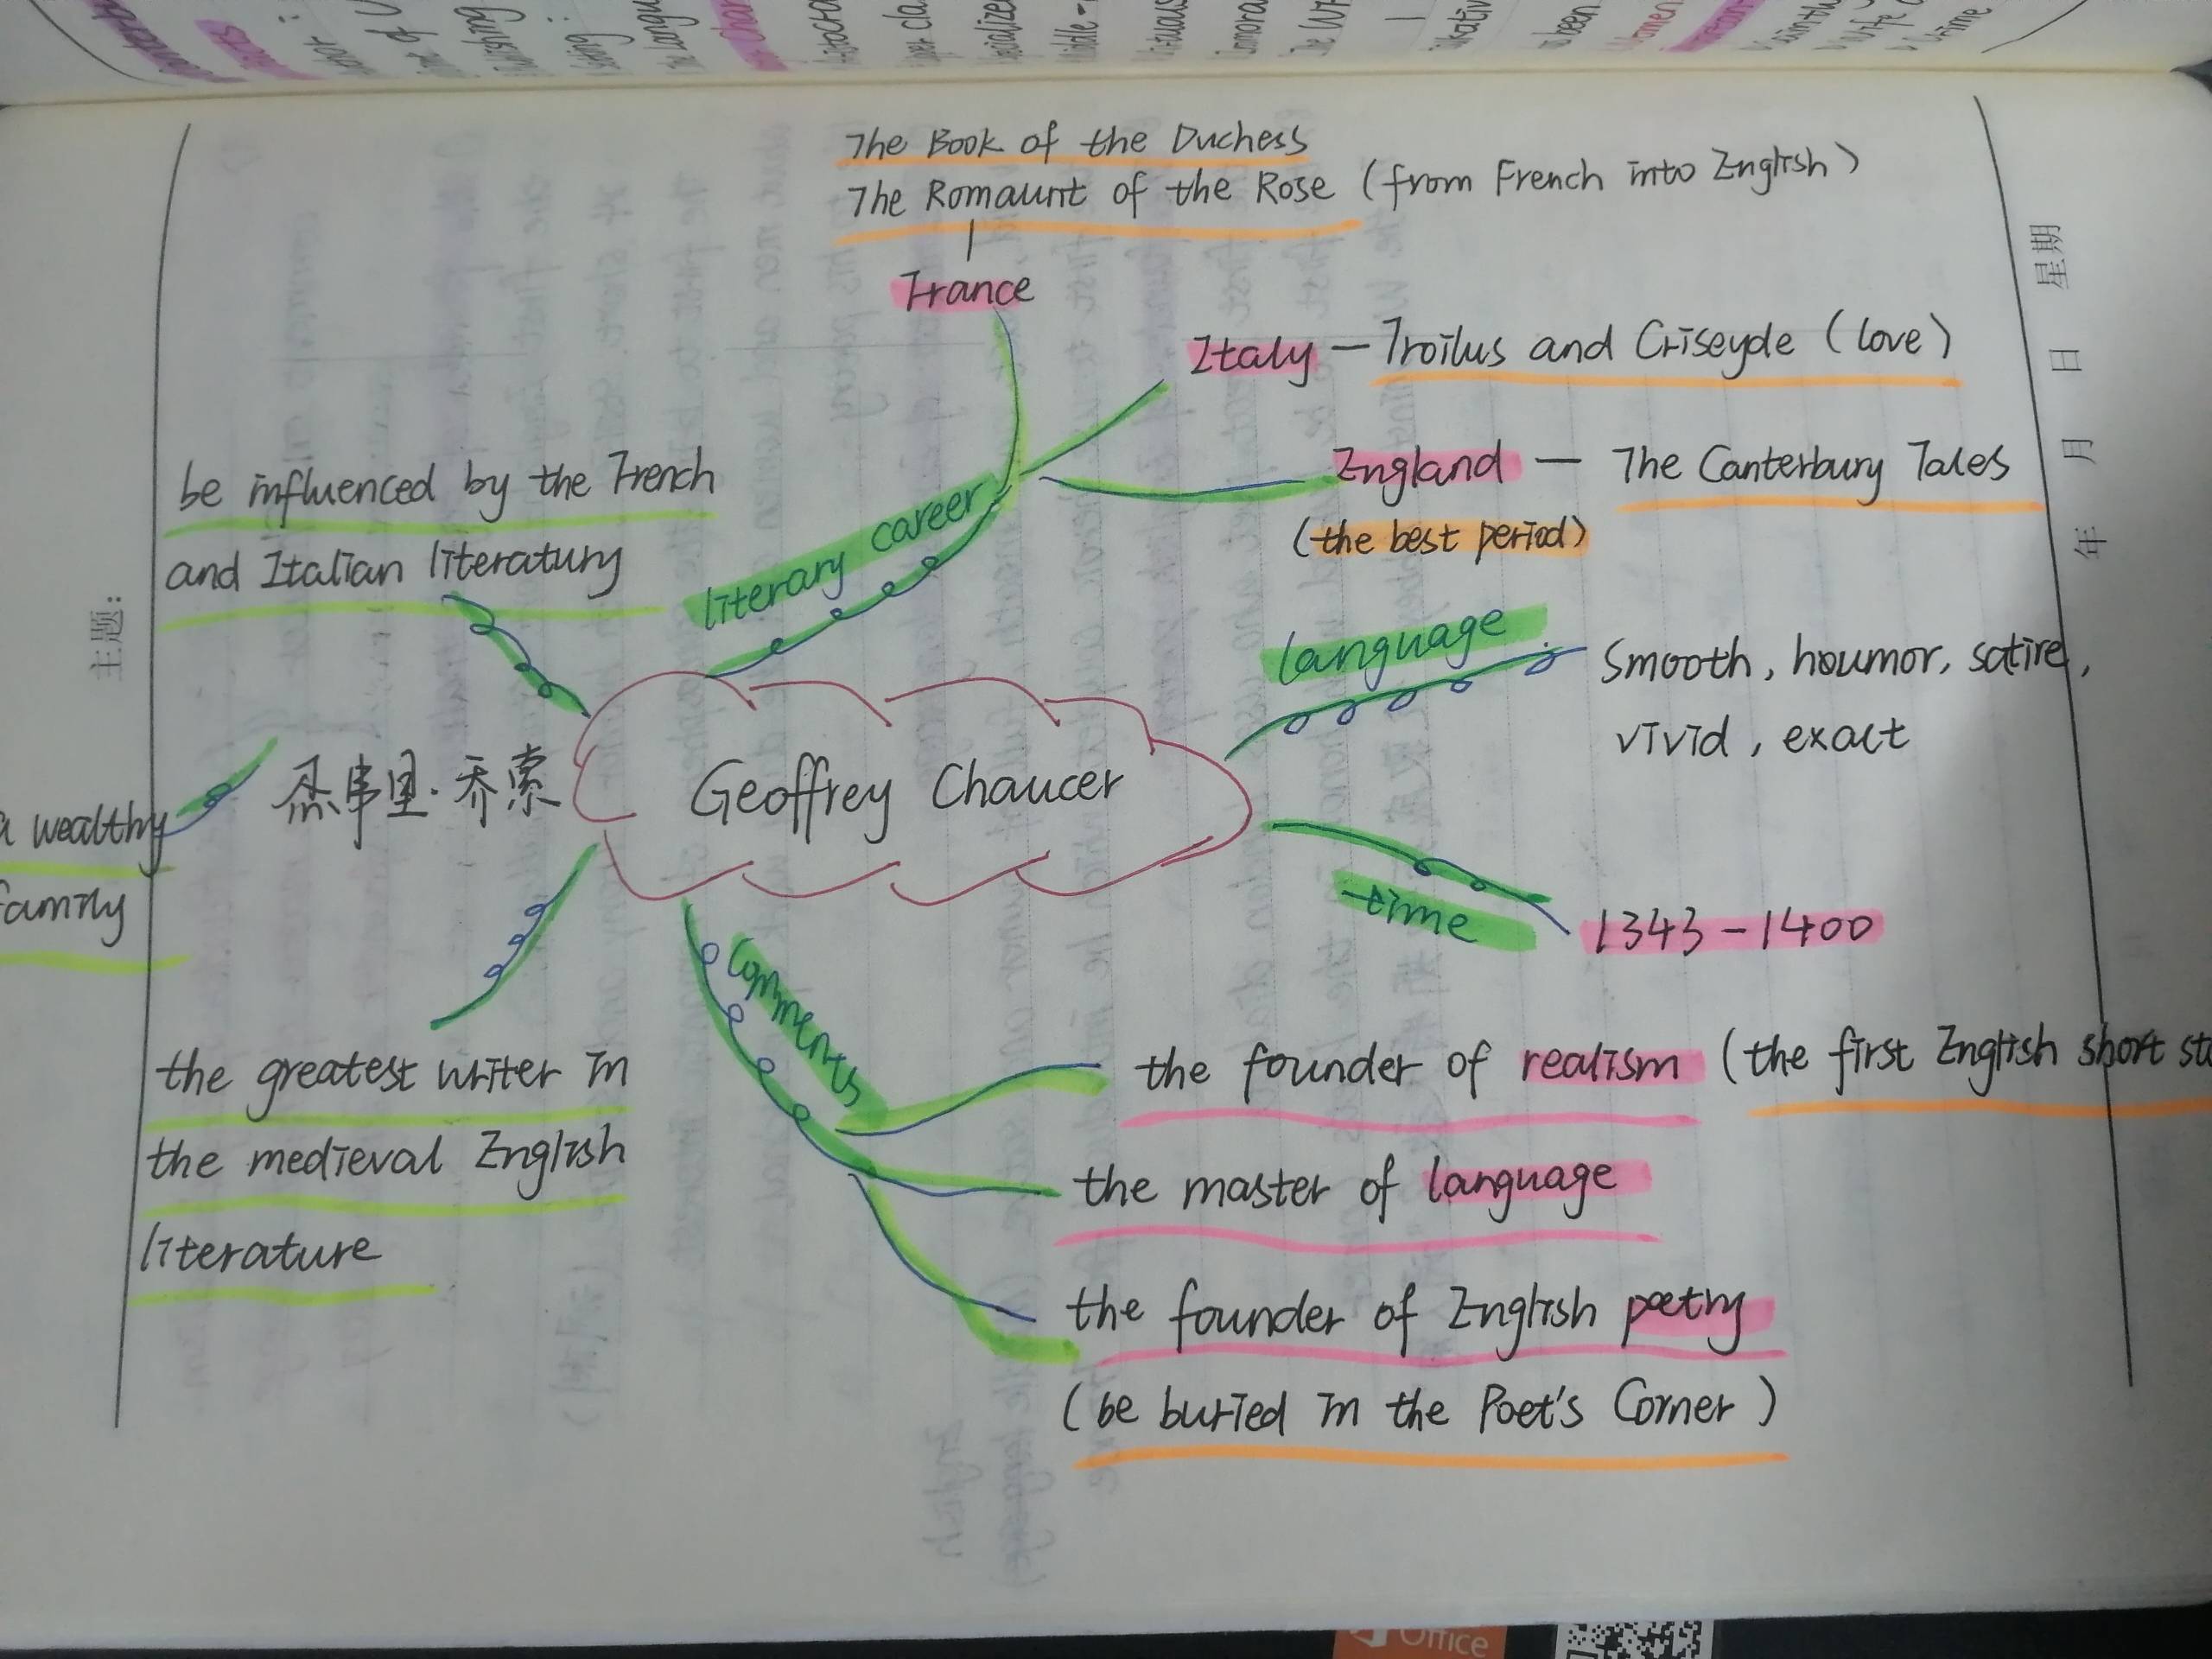 The Book of the Duchess
The Romaunt of the Rose (from French into English)
France
Italy — Troilus and Criseyde (love)
England — The Canterbury Tales
(the best period)
literary career
be influenced by the French
and Italian literatury
language
Smooth, houmor, satire,
vivid, exact
Geoffrey Chaucer
杰弗里·乔索
a wealthy
family
time
1343-1400
the greatest writer in
the medieval English
literature
Comments
the founder of realism (the first English short
the master of language
the founder of English poetry
(be buried in the Poet's Corner)
主题:
星期
日
月
年
Office